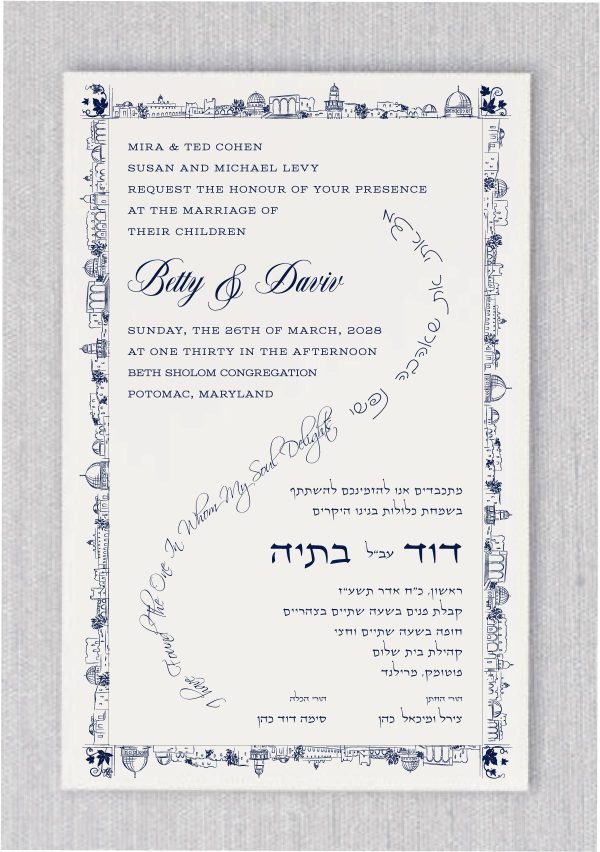 MIRA & TED COHEN
SUSAN AND MICHAEL LEVY
REQUEST THE HONOUR OF YOUR PRESENCE
AT THE MARRIAGE OF
THEIR CHILDREN
Betty & Daviv
SUNDAY, THE 26TH OF MARCH, 2028
AT ONE THIRTY IN THE AFTERNOON
BETH SHOLOM CONGREGATION
POTOMAC, MARYLAND
מצאתי את שאהבה נפשי
I have Found the One In Whom My Soul Delights
מתכבדים אנו להזמינכם להשתתף
בשמחת כלולות בנינו היקרים
דוד עב״ל בתיה
ראשון, כ״ח אדר תשע״ז
קבלת פנים בשעה שתיים בצהריים
חופה בשעה שתיים וחצי
קהילת בית שלום
פוטומק, מרילנד
הורי החתן
צירל ומיכאל כהן
הורי הכלה
סימה דוד כהן